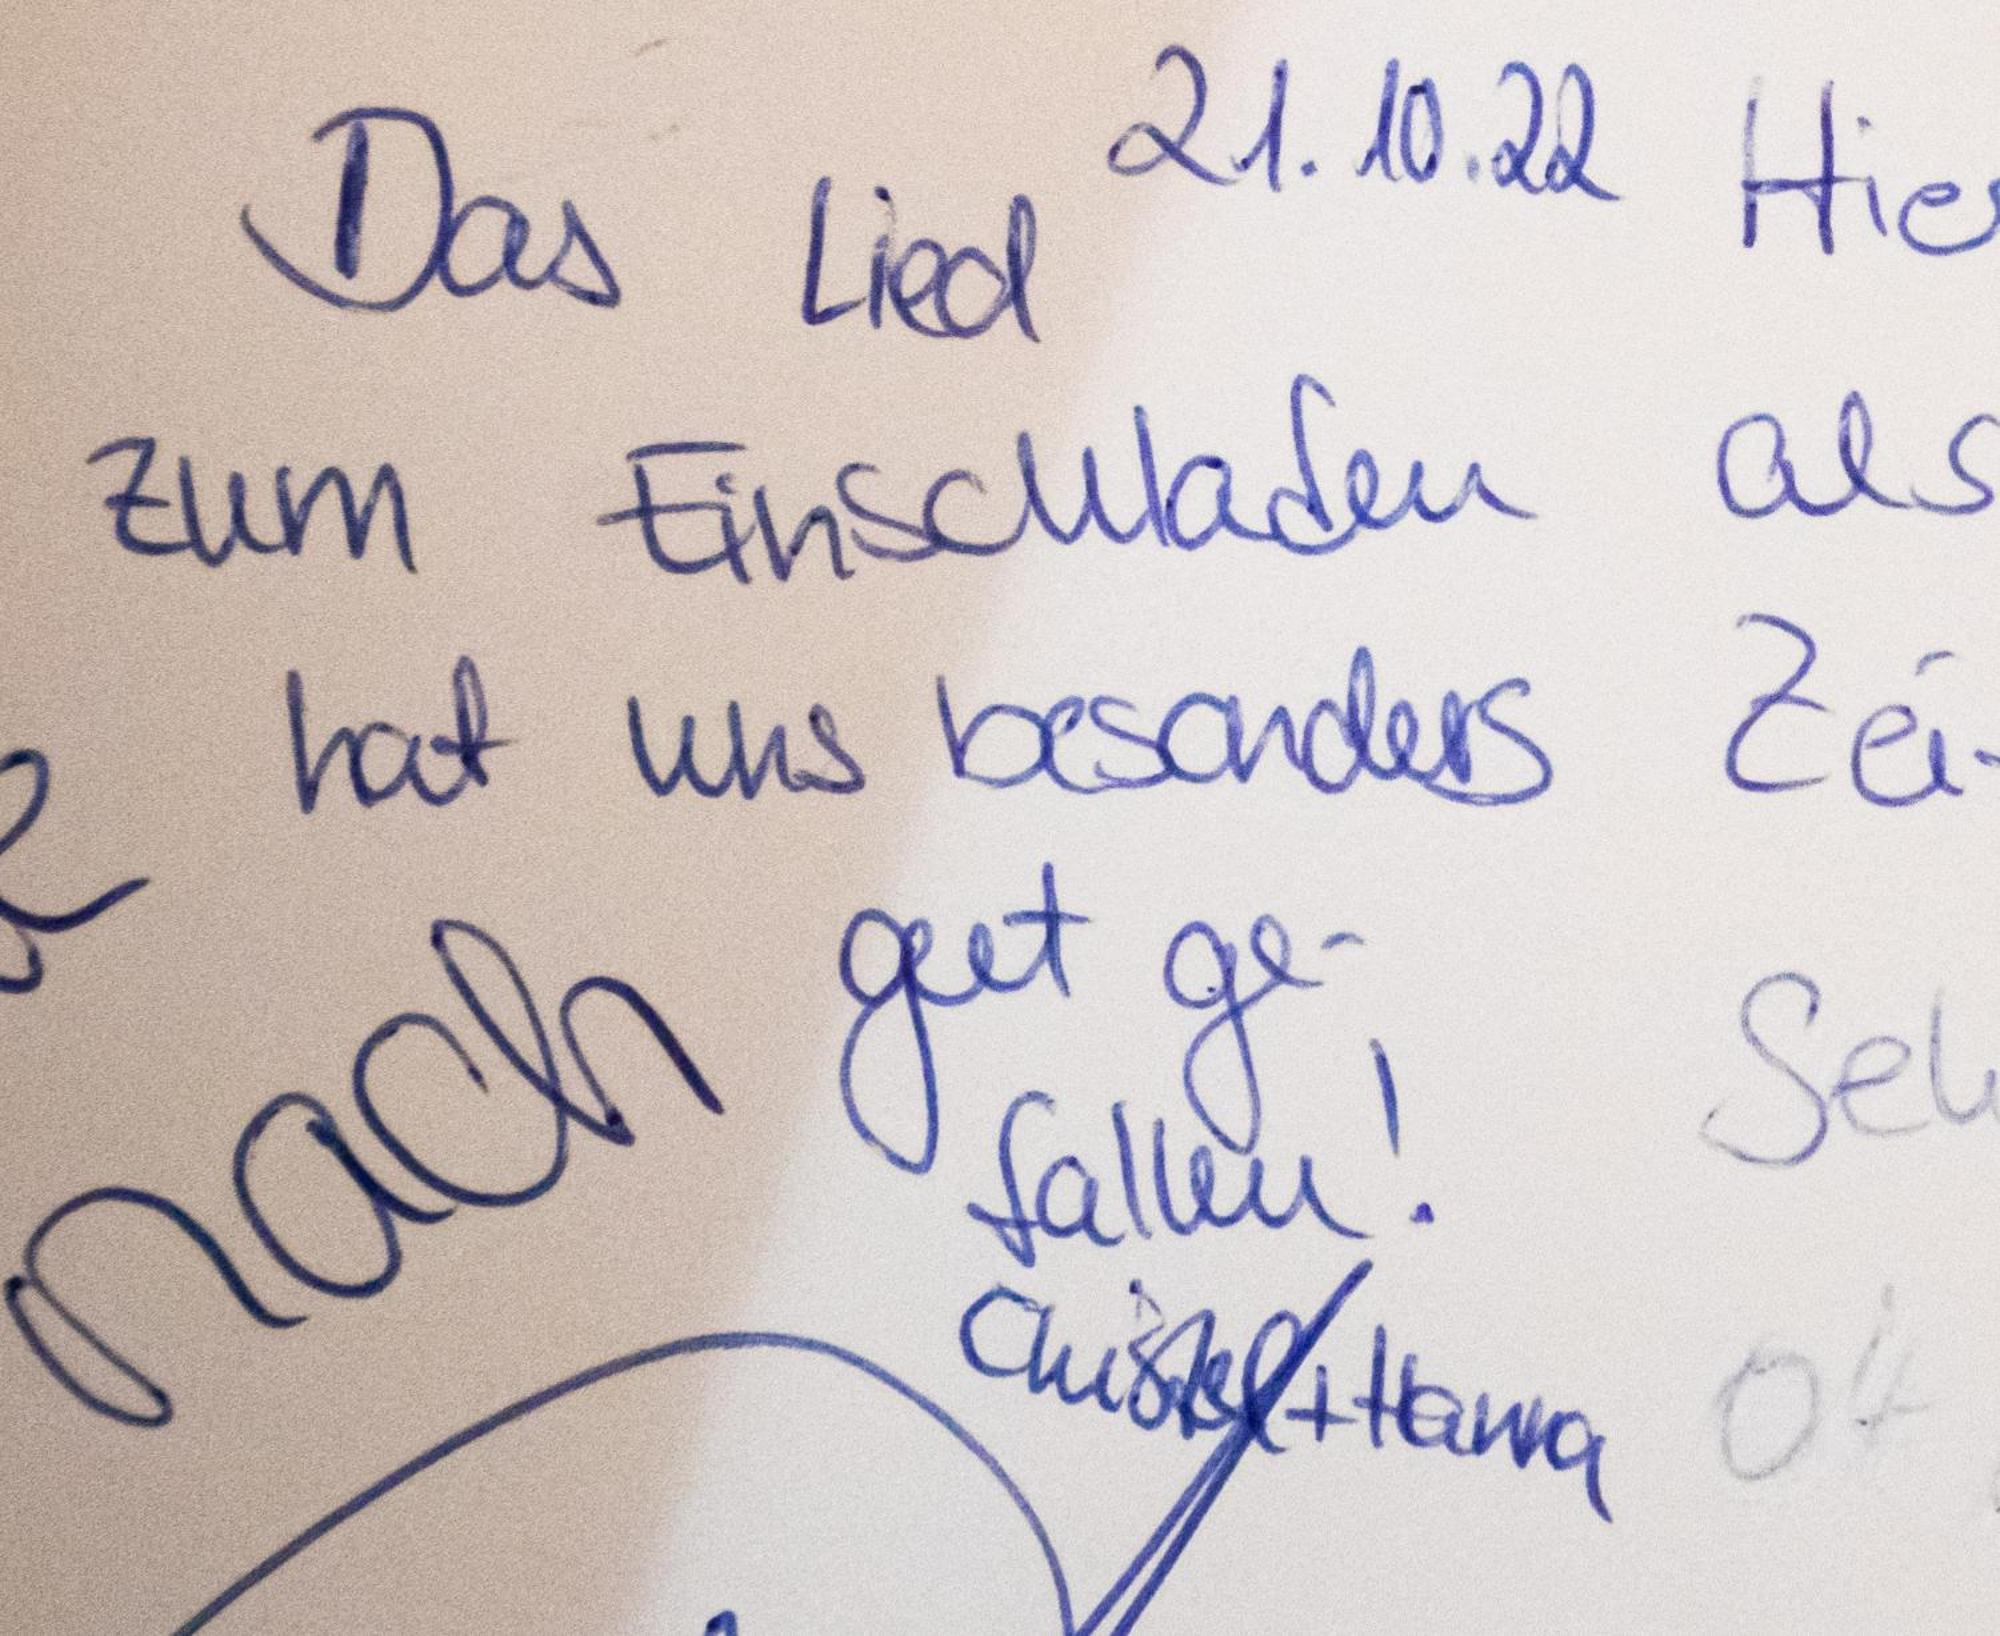 21.10.22
Das Lied
zum Einschlafen
hat uns besonders
gut ge-
fallen!
Christel + Hanna
nach
Hier
als
Zei-
Seh